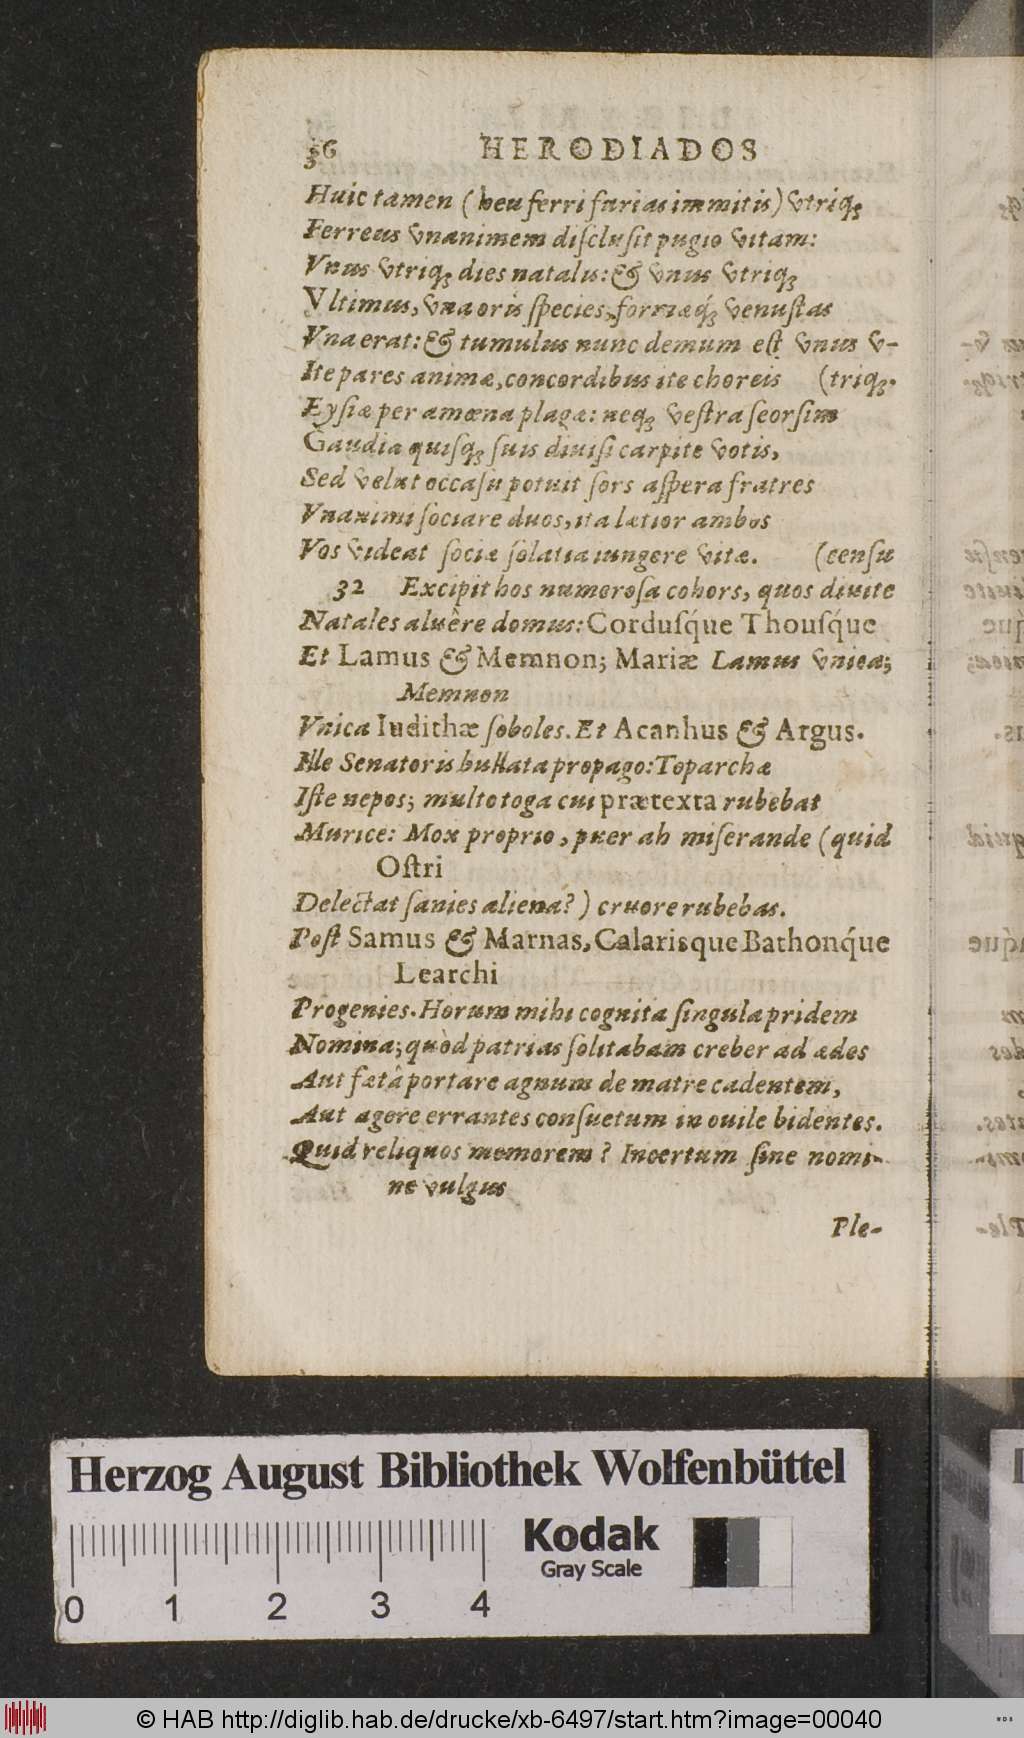 36 HERODIADOS
Huic tamen (heu ferri furias immitis) vtriq;
Ferreus vnanimem disclusit pugio vitam:
Vnus vtriq; dies natalis: & vnus vtriq;
Vltimus, vna oris species, formæq́; venustas
Vna erat: & tumulus nunc demum est vnus v-
Ite pares animæ, concordibus ite choreis (triq;.
Eysiæ per amœna plagæ: neq; vestra seorsim
Gaudia quisq; suis diuisi carpite votis,
Sed velut occasu potuit sors aspera fratres
Vnanimi sociare duos, ita lætior ambos
Vos videat sociæ solatia iungere vitæ. (censu
32 Excipit hos numerosa cohors, quos diuite
Natales aluêre domus: Cordusq́ue Thousq́ue
Et Lamus & Memnon; Mariæ Lamus vnica;
Memnon
Vnica Iudithæ soboles. Et Acanhus & Argus.
Ille Senatoris bullata propago: Toparchæ
Iste nepos; multo toga cui prætexta rubebat
Murice: Mox proprio, puer ah miserande (quid
Ostri
Delectat sanies aliena?) cruore rubebas.
Post Samus & Marnas, Calarisque Bathonq́ue
Learchi
Progenies. Horum mihi cognita singula pridem
Nomina; quòd patrias solitabam creber ad ædes
Aut fætâ portare agnum de matre cadentem,
Aut agere errantes consuetum in ouile bidentes.
Quid reliquos memorem? Incertum sine nomi-
ne vulgus
Ple-
Herzog August Bibliothek Wolfenbüttel
Kodak
Gray Scale
0 1 2 3 4
© HAB http://diglib.hab.de/drucke/xb-6497/start.htm?image=00040